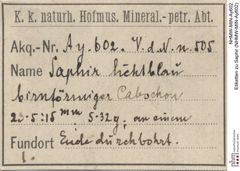 K. k. naturh. Hofmus. Mineral.-petr. Abt.
Akq.-Nr. A.y.602. V.d.N.n.505
Name Saphir lichtblau
birnförmiger Cabochon
23·5:15 mm 5·32 g. an einem
Fundort Ende durchbohrt.
1.